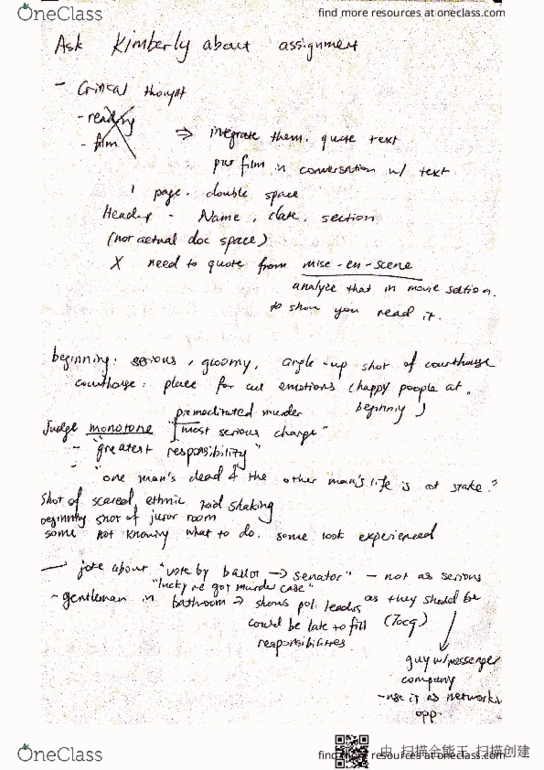 OneClass
find more resources at oneclass.com
Ask Kimberly about assignment
- Critical thought
- reading
- film
⇒ integrate them. quote text
put film in conversation w/ text
1 page. double space
Header - Name, date, section
(not actual doc space)
X need to quote from mise-en-scene
analyze that in movie section.
to show you read it.
beginning: serious, gloomy, angle-up shot of courthouse
courthouse: place for all emotions (happy people at beginning)
premeditated murder
Judge monotone "most serious charge"
- "greatest responsibility"
- "one man's dead & the other man's life is at stake."
Shot of scared, ethnic kid shaking
beginning shot of juror room
some not knowing what to do. some look experienced
joke about "vote by ballot → senator" - not as serious as they should be
"lucky we got murder case"
- gentleman in bathroom ⇒ shows pol. leaders
could be late to fill responsibilities
(Tocq)
guy w/ messenger company
- use it as networking opp.
OneClass
find more resources at oneclass.com
扫描全能王 扫描创建